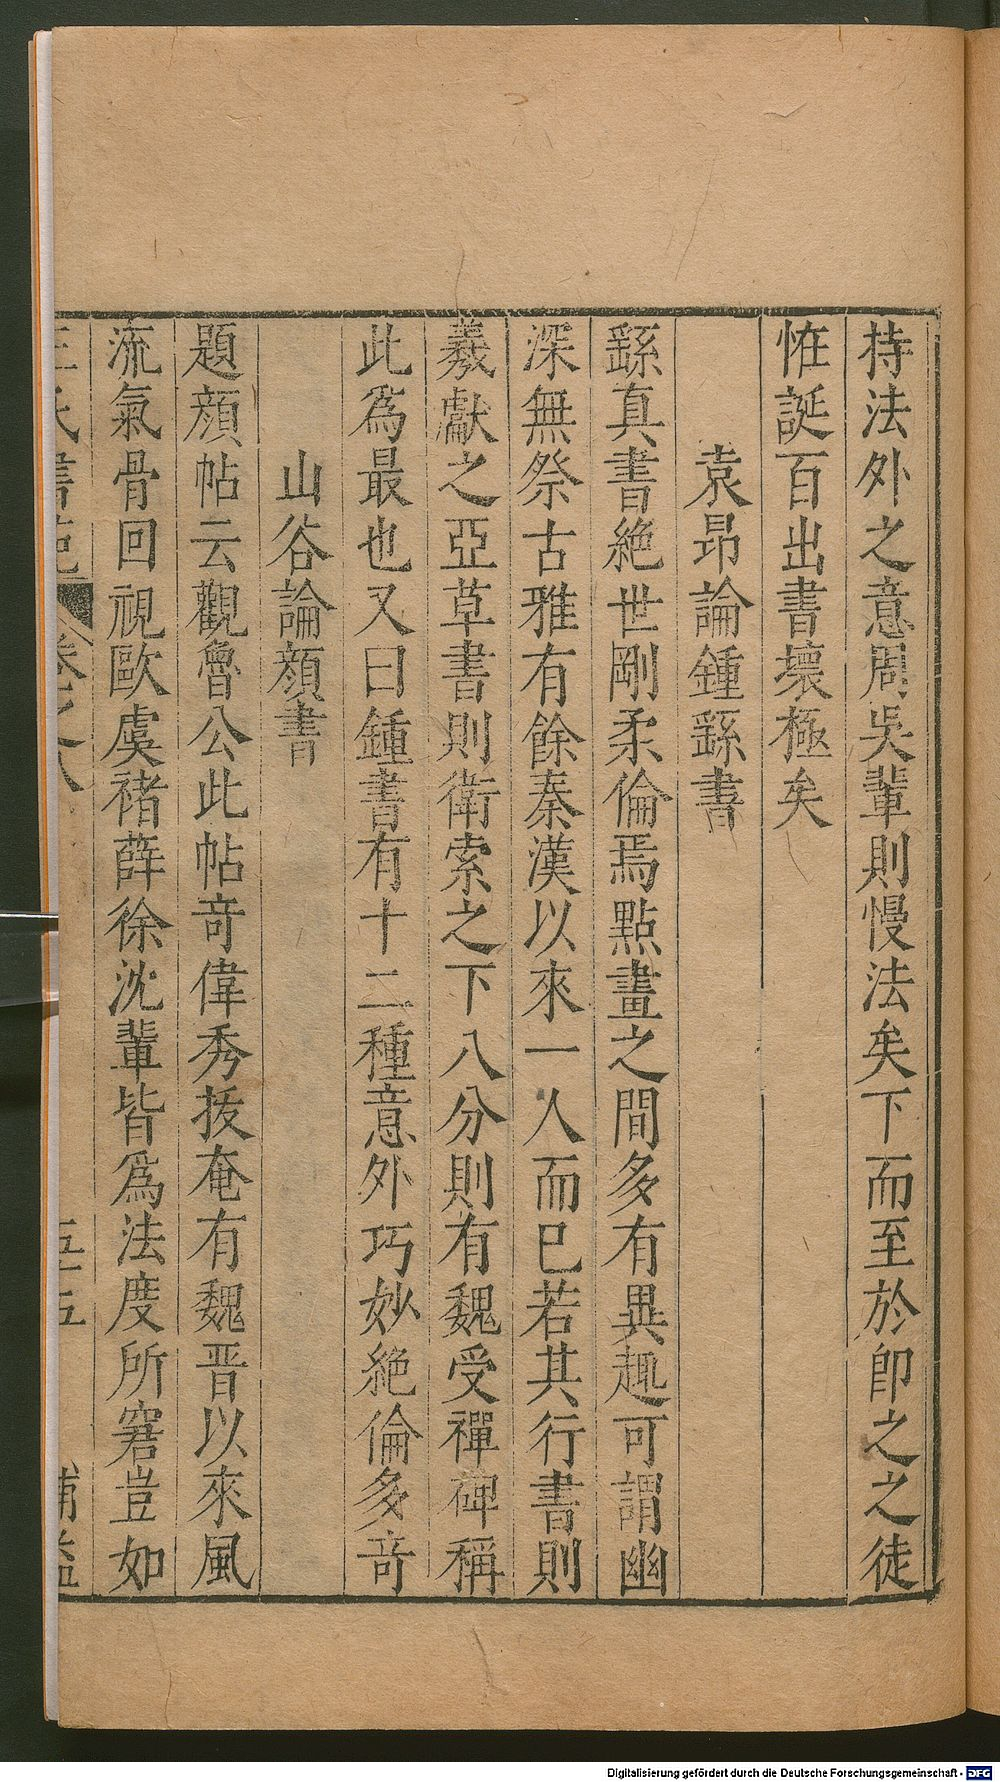 持法外之意周吳輩則慢法矣下而至於卽之之徒
恠誕百出書壞極矣
袁昂論鍾繇書
繇真書絕世剛柔俻焉點畫之間多有異趣可謂幽
深無祭古雅有餘秦漢以來一人而已若其行書則
羲獻之亞草書則衛索之下八分則有魏受禪碑稱
此爲最也又曰鍾書有十二種意外巧妙絕倫多竒
山谷論顏書
題顏帖云觀魯公此帖竒偉秀拔奄有魏晉以來風
流氣骨回視歐虞褚薛徐沈輩皆爲法度所窘豈如
王氏書苑 卷之八 五十五 補益
Digitalisierung gefördert durch die Deutsche Forschungsgemeinschaft - DFG